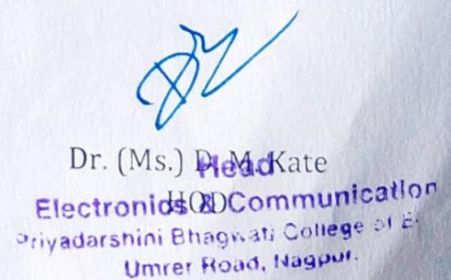 Dr. (Ms.) D. M. Kate
Head
HOD
Electronics & Communication
Priyadarshini Bhagwati College of E.
Umrer Road, Nagpur.